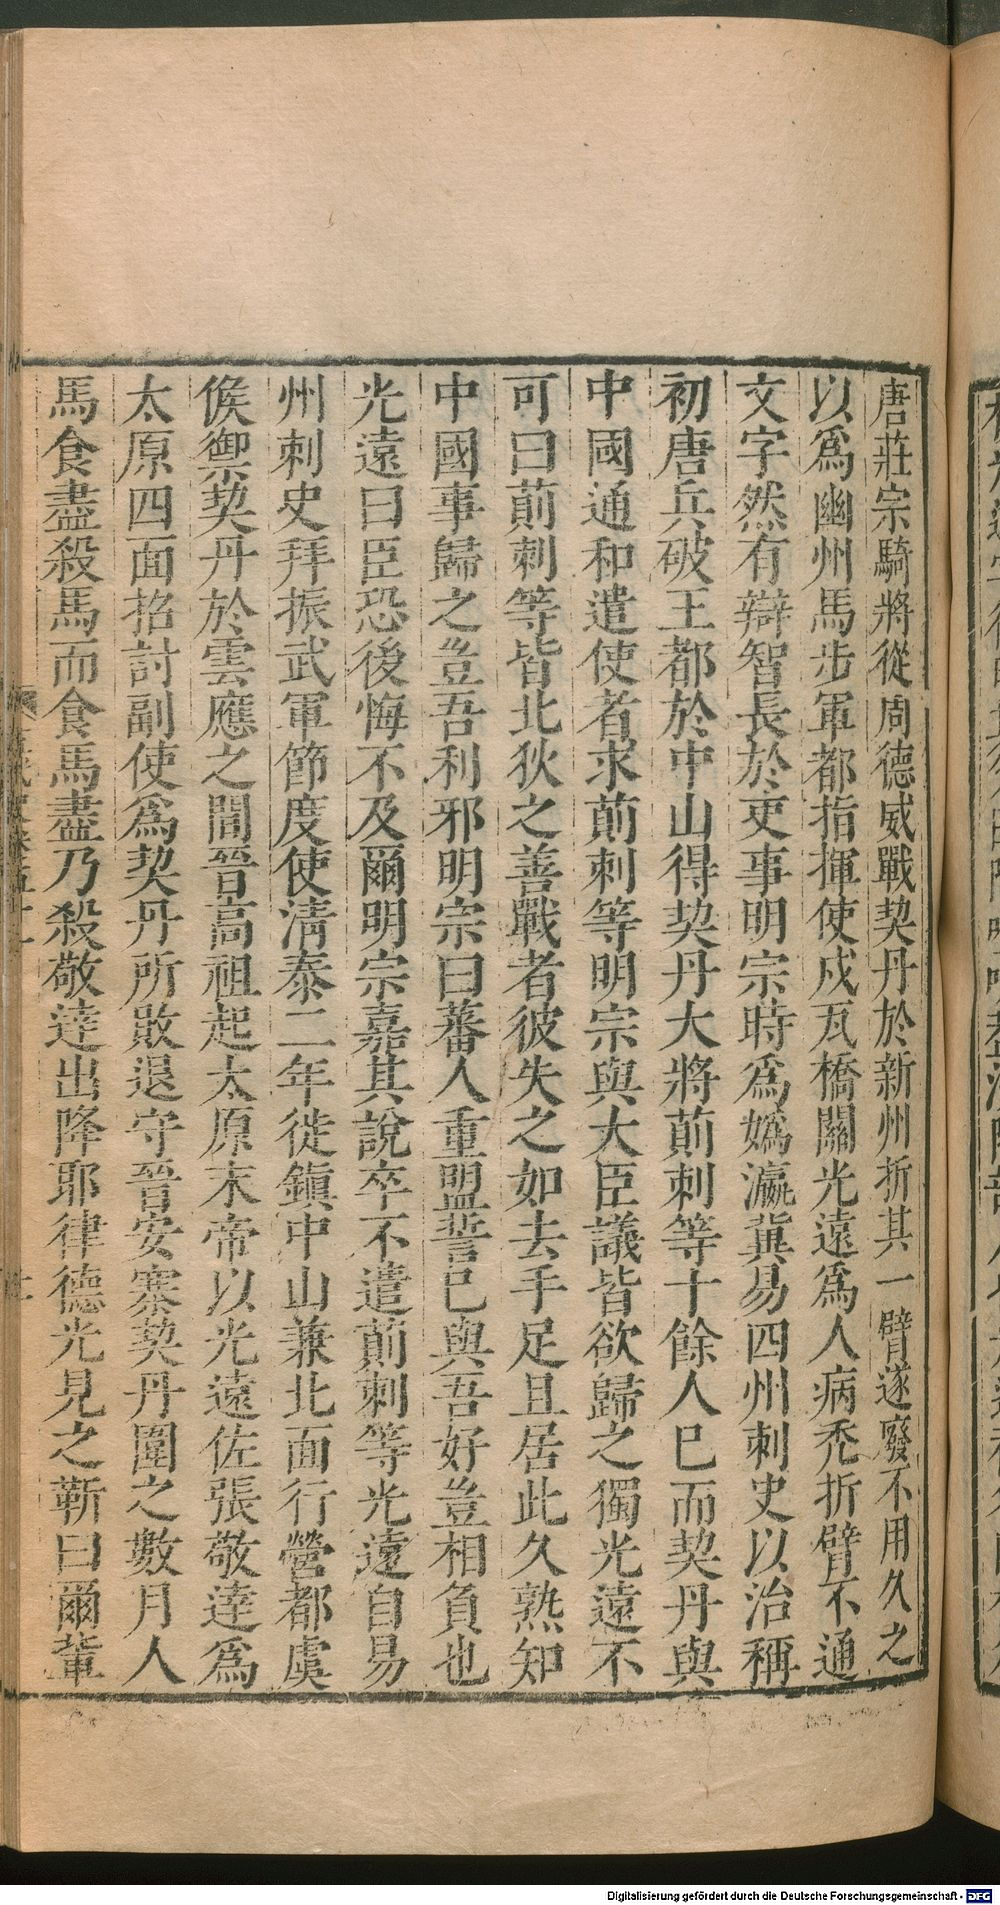 唐莊宗騎將從周德威戰契丹於新州折其一臂遂廢不用久之
以爲幽州馬步軍都指揮使戍瓦橋關光遠爲人病禿折臂不通
文字然有辯智長於吏事明宗時爲嬀瀛冀易四州刺史以治稱
初唐兵破王都於中山得契丹大將萴剌等十餘人已而契丹與
中國通和遣使者求萴剌等明宗與大臣議皆欲歸之獨光遠不
可曰萴剌等皆北狄之善戰者彼失之如去手足且居此久熟知
中國事歸之豈吾利邪明宗曰蕃人重盟誓已與吾好豈相負也
光遠曰臣恐後悔不及爾明宗嘉其說卒不遣萴剌等光遠自易
州刺史拜振武軍節度使清泰二年徙鎮中山兼北面行營都虞
候禦契丹於雲應之間晉高祖起太原末帝以光遠佐張敬達爲
太原四面招討副使爲契丹所敗退守晉安寨契丹圍之數月人
馬食盡殺馬而食馬盡乃殺敬達出降耶律德光見之靳曰爾輩
Digitalisierung gefördert durch die Deutsche Forschungsgemeinschaft - DFG